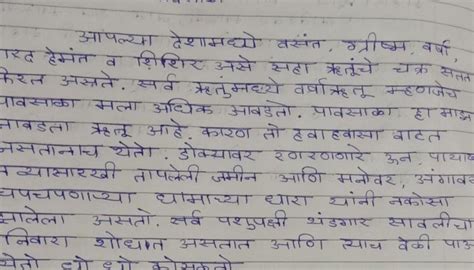 आपल्या देशामध्ये वसंत, ग्रीष्म, वर्षा,
शरद हेमंत व शिशिर असे सहा ऋतूंचे चक्र सतत
फिरत असते. सर्व ऋतूंमध्ये वर्षाऋतू म्हणजेच
पावसाळा मला अधिक आवडतो. पावसाळा हा माझा
आवडता ऋतू आहे. कारण तो हवाहवासा वाटत
असतानाच येतो. डोक्यावर रणरणणारे ऊन, पाया
तव्यासारखी तापलेली जमीन आणि मनोवर, अंगावर
चपचपणाऱ्या घामाच्या धारा यांनी नकोसा
झालेला असतो. सर्व पशुपक्षी थंडगार सावलीचा
निवारा शोधत असतात आणि त्याच वेळी पाऊ
येतो धो धो कोसळतो